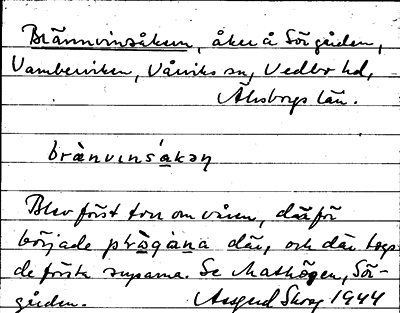 Brännvinsåkern, åker å Sörgården,
Vamberviken, Vårviks sn, Vedbo hd,
Älvsborgs län.
brànvinsákəṇ
Blev först torr om våren, därför
började plö̀gàṇa där, och där togs
de första suparna. Se Mathögen, Sör-
gården. Assgerd Skog 1944